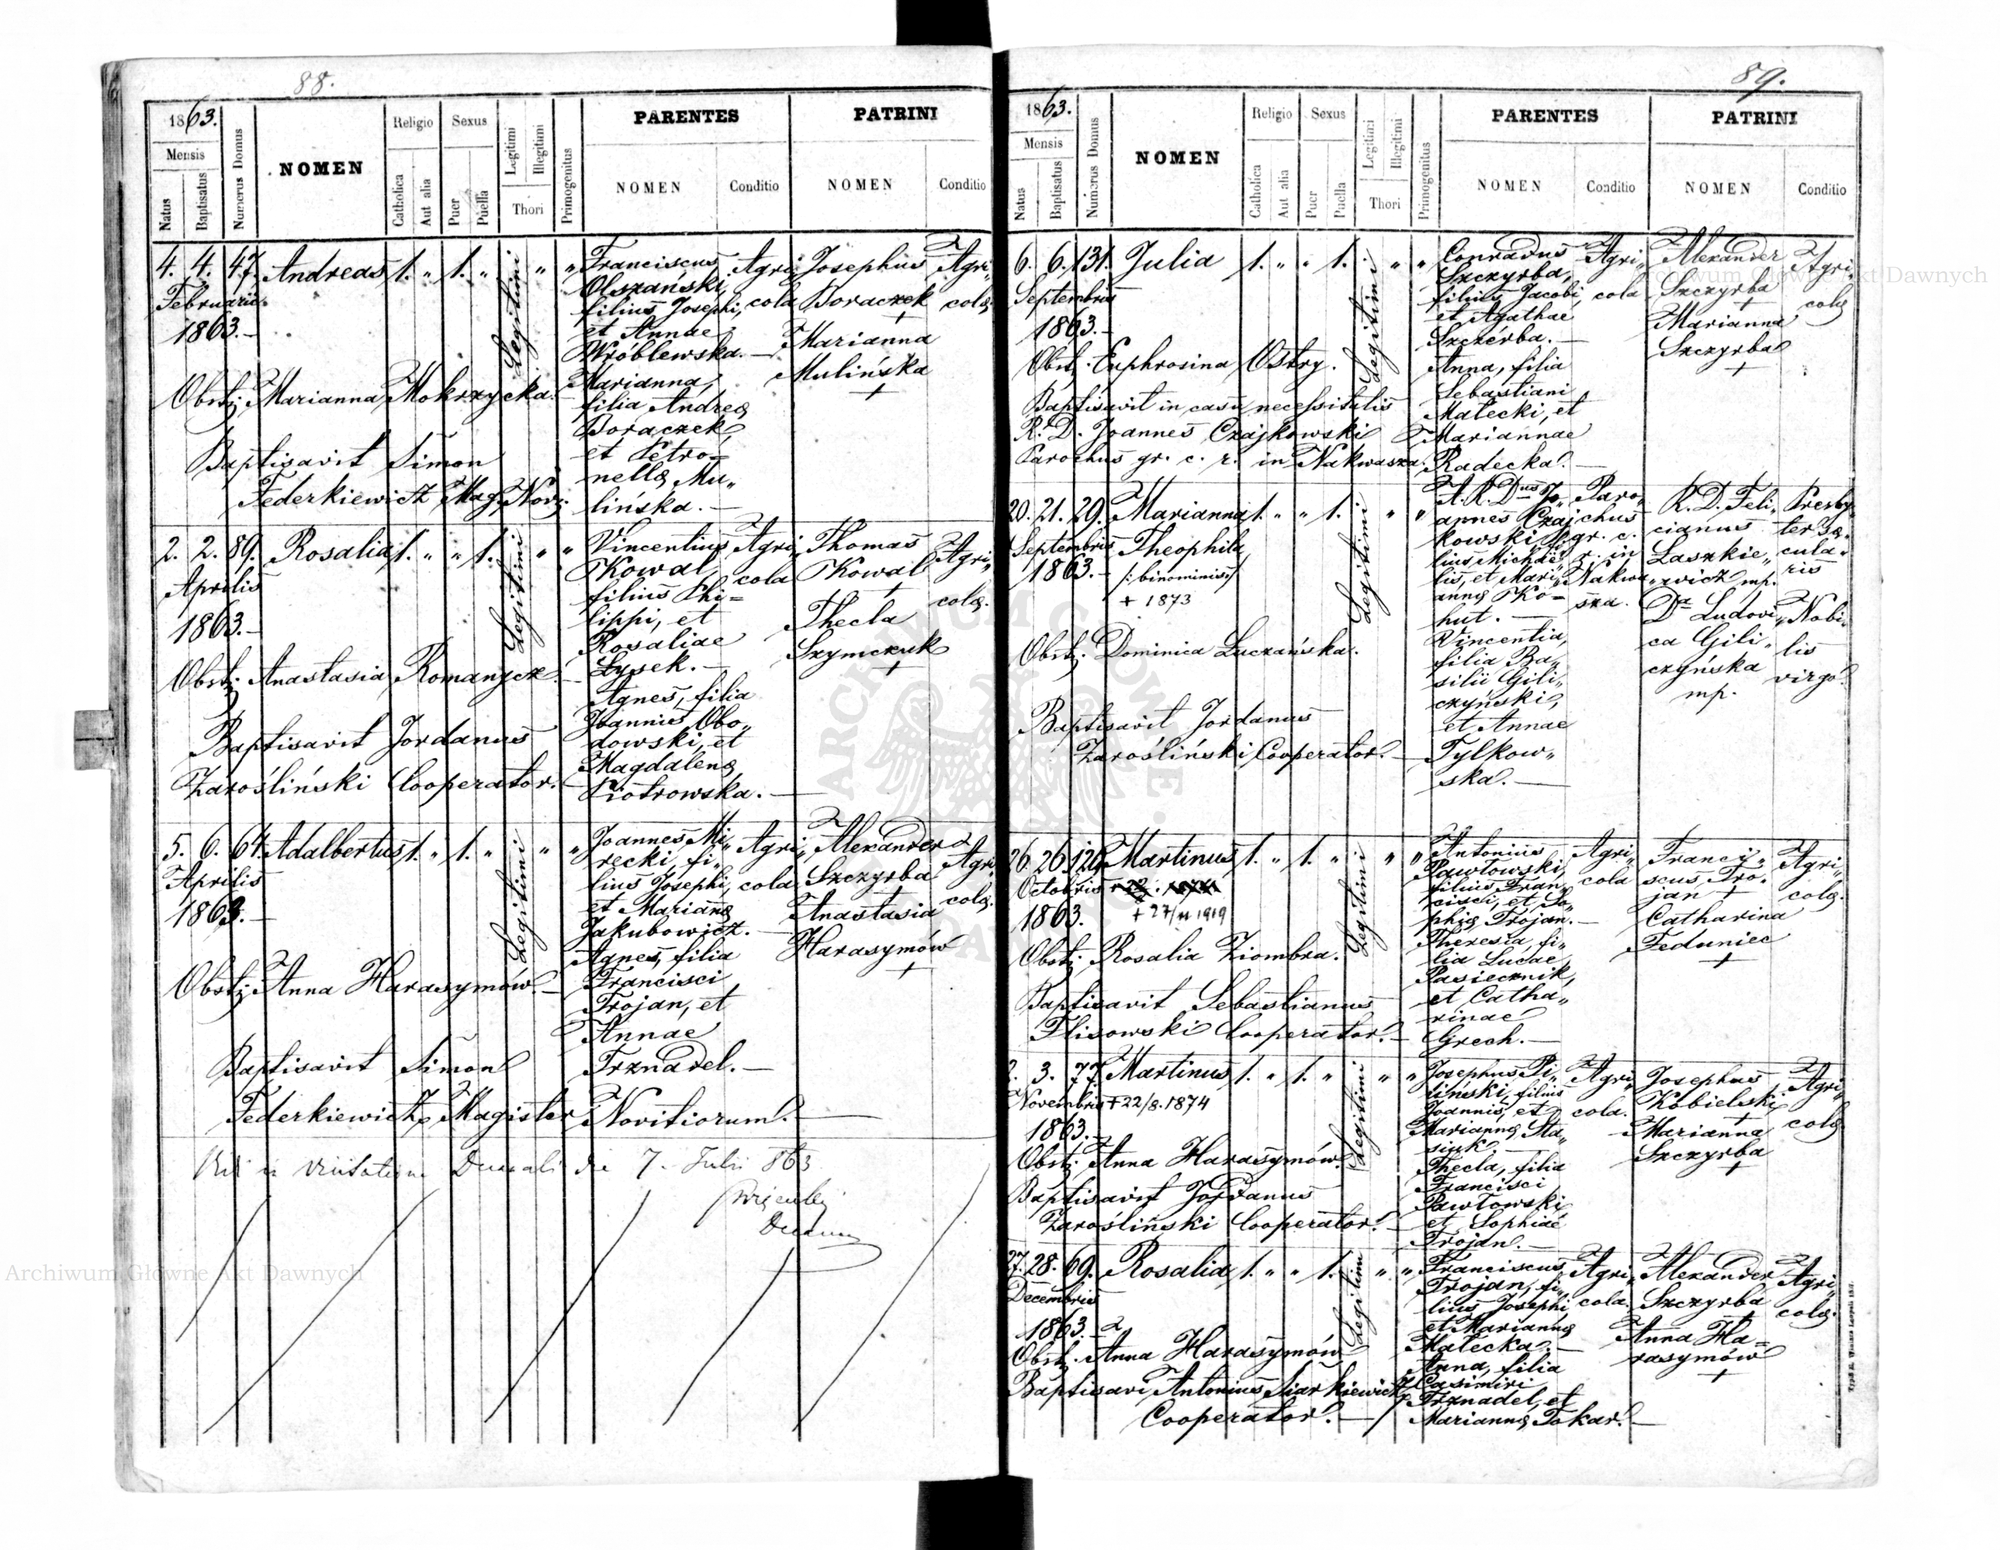 88.
1863.
Mensis
Natus
Baptisatus
Numerus Domus
NOMEN
Religio
Catholica
Aut alia
Sexus
Puer
Puella
Legitimi
Illegitimi
Thori
Primogenitus
PARENTES
NOMEN
Conditio
PATRINI
NOMEN
Conditio
4. 4. 47. Andreas 1. " 1. " Legitimi " "
Februarii
1863.—
Obst: Marianna Mokrzycka.—
Baptisavit Simon
Federkiewicz Mag. Nov:
Franciscus
Olszański,
filius Josephi,
et Annae
Wróblewska.—
Marianna,
filia Andreae
Boraczek,
et Petro=
nella Mu„
lińska.—
Agri„
cola
Josephus
Boraczek
+
Marianna
Mulińska
+
Agri„
cola
2. 2. 89. Rosalia 1. " " 1. Legitimi " "
Aprilis
1863.—
Obst: Anastasia Romanycz.—
Baptisavit Jordanus
Zarośliński Cooperator.—
Vincentius
Kowal,
filius Phi=
lippi, et
Rosaliae
Łysek.—
Agnes, filia
Joannis Obo„
dowski, et
Magdalena
Piotrowska.—
Agri„
cola
Thomas
Kowal
+
Thecla
Szymczuk
+
Agri„
cola.
5. 6. 64. Adalbertus 1. " 1. " Legitimi " "
Aprilis
1863.—
Obst: Anna Harasymów.—
Baptisavit Simon
Federkiewicz Magister Novitiorum.—
Joannes Mi„
recki, fi„
lius Josephi,
et Marianna
Jakubowicz.—
Agnes, filia
Francisci
Trojan, et
Annae
Trznadel.—
Agri„
cola
Alexander
Szczyrba
Anastasia
Harasymów
+
Agri„
cola
die 7. Julii 863
89.
1863.
Mensis
Natus
Baptisatus
Numerus Domus
NOMEN
Religio
Catholica
Aut alia
Sexus
Puer
Puella
Legitimi
Illegitimi
Thori
Primogenitus
PARENTES
NOMEN
Conditio
PATRINI
NOMEN
Conditio
6. 6. 131. Julia 1. " " 1. Legitimi " "
Septembris
1863.—
Obst: Euphrosina Ostry.
Baptisavit in casu necessitatis
R. D. Joannes Czajkowski
Parochus gr. c. r. in Nakwasza.
Conradus
Szczyrba,
filius Jacobi,
et Agathae
Szczérba.—
Anna, filia
Sebastiani
Małecki, et
Mariannae
Radecka.—
Agri„
cola
Alexander
Szczyrba
+
Marianna
Szczyrba
+
Agri„
cola
20. 21. 29. Marianna 1. " " 1. Legitimi " "
Septembris Theophila
1863.— /:binominis:/
+ 1873
Obst: Dominica Luczańska.
Baptisavit Jordanus
Zarośliński Cooperator.—
A. R. Dnus Jo„
annes Czaj„
kowski fi„
lius Michae„
lis, et Mari„
anna Ko=
hut.—
Vincentia,
filia Ba„
silii Gili„
czyński,
et Annae
Tylkow„
ska.—
Paro„
chus
gr. c.
r. in
Nakwa„
sza.
R. D. Feli„
cianus
Laszkie„
wicz mp.
Da Ludovi„
ca Gili„
czyńska
mp.
Presby„
ter Sae„
cula„
ris
Nobi„
lis
virgo.
26. 26. 126. Martinus 1. " 1. " Legitimi " "
Octobris
1863. + 27/11 1919
Obst: Rosalia Ziombra.
Baptisavit Sebastianus
Flisowski Cooperator.—
Antonius
Pawłowski,
filius Fran„
cisci, et So„
phia Trojan.—
Theresia, fi„
lia Lucae
Pasiecznik,
et Catha„
rinae
Grech.—
Agri„
cola
Franci„
scus Tro„
jan +
Catharina
Feduniec
+
Agri„
cola.
2. 3. 77. Martinus 1. " 1. " Legitimi " "
Novembris + 22/8. 1874
1863.
Obst: Anna Harasymów.
Baptisavit Jordanus
Zarośliński Cooperator.—
Josephus Pi„
liński, filius
Joannis, et
Marianna Sta„
siuk—
Thecla, filia
Francisci
Pawłowski
et Sophiae
Trojan.—
Agri„
cola.
Josephus
Kobielski
Marianna
Szczyrba
+
Agri„
cola
27. 28. 69. Rosalia 1. " " 1. Legitimi " "
Decembris
1863.
Obst: Anna Harasymów
Baptisavi Antonius Siarkiewicz
Cooperator.—
Franciscus
Trojan, fi„
lius Josephi
et Marianna
Małecka.—
Anna, filia
Casimiri
Trznadel, et
Marianna Tokar.—
Agri„
cola.
Alexander
Szczyrba
Anna Ha=
rasymów
+
Agri„
cola.
Archiwum Główne Akt Dawnych
Archiwum Główne Akt Dawnych